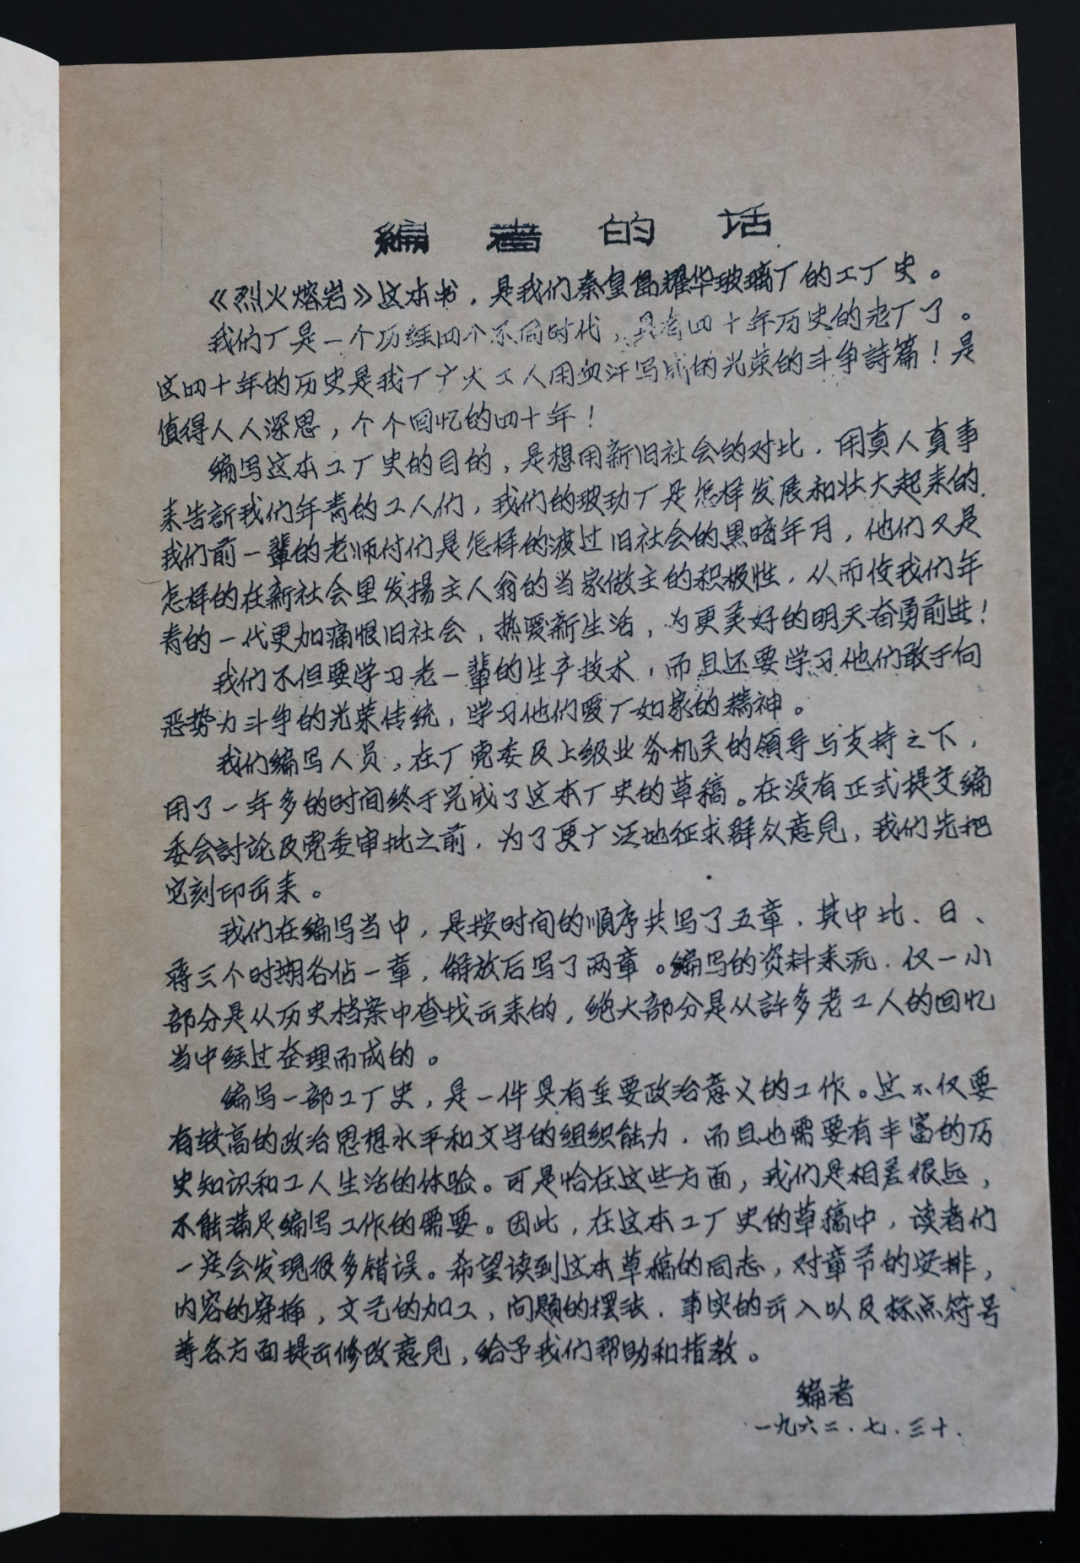 编者的话
《烈火熔岩》这本书，是我们秦皇岛耀华玻璃厂的工厂史。
我们厂是一个历经四个不同时代，具有四十年历史的老厂了。
这四十年的历史是我厂广大工人用血汗写成的光荣的斗争詩篇！是
值得人人深思，个个回忆的四十年！
编写这本工厂史的目的，是想用新旧社会的对比，用真人真事
来告訴我们年青的工人们，我们的玻功厂是怎样发展和壮大起来的，
我们前一輩的老师付们是怎样的渡过旧社会的黑暗年月，他们又是
怎样的在新社会里发揚主人翁的当家做主的积极性，从而使我们年
青的一代更加痛恨旧社会，热爱新生活，为更美好的明天奋勇前进！
我们不但要学习老一輩的生产技术，而且还要学习他们敢于向
恶势力斗争的光荣传统，学习他们爱厂如家的精神。
我们编写人员，在厂党委及上级业务机关的领导与支持之下，
用了一年多的时间终于完成了这本厂史的草稿。在没有正式提交编
委会討论及党委审批之前，为了更广泛地征求群众意見，我们先把
它刻印出来。
我们在编写当中，是按时间的順序共写了五章，其中比、日、
蒋三个时期各佔一章，解放后写了两章。编写的资料来沅，仅一小
部分是从历史档案中查找出来的，绝大部分是从許多老工人的回忆
当中经过整理而成的。
编写一部工厂史，是一件具有重要政治意义的工作。这不仅要
有较高的政治思想水平和文学的组织能力，而且也需要有丰富的历
史知识和工人生活的体验。可是恰在这些方面，我们是相差很远，
不能满足编写工作的需要。因此，在这本工厂史的草稿中，读者们
一定会发现很多错误。希望读到这本草稿的同志，对章节的安排，
内容的穿插，文艺的加工，问题的摆法，事实的出入以及标点符号
等各方面提出修改意見，给予我们帮助和指教。
编者
一九六二．七．三十．